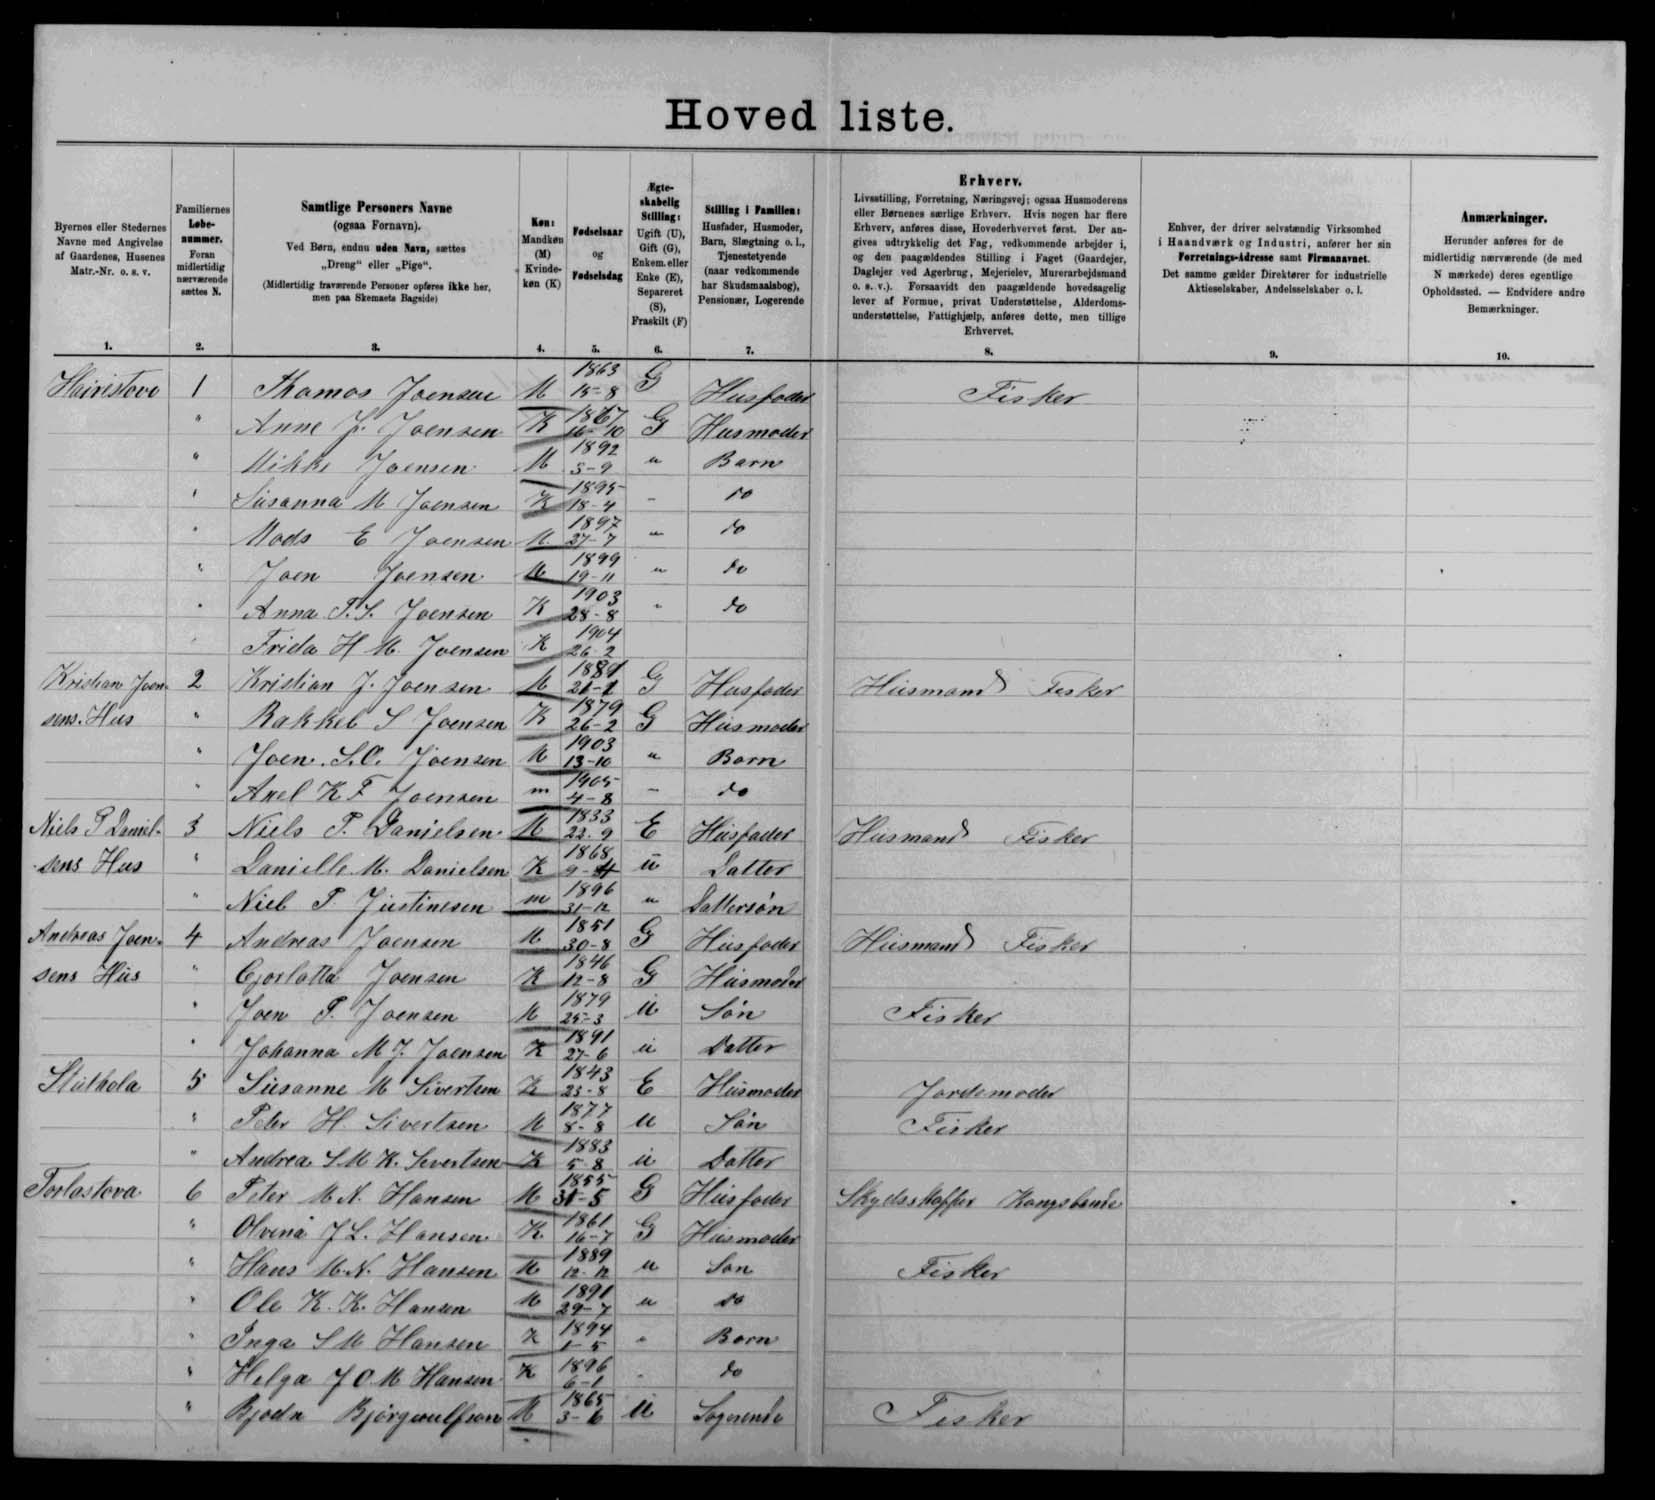 Hovedliste.
Byernes eller Stedernes Navne med Angivelse af Gaardenes, Husenes Matr.-Nr. o. s. v.
Familiernes Løbe-nummer. Foran midlertidig nærværende sættes N.
Samtlige Personers Navne (ogsaa Fornavn). Ved Børn, endnu uden Navn, sættes „Dreng“ eller „Pige“. (Midlertidig fraværende Personer opføres ikke her, men paa Skemaets Bagside)
Køn: Mandkøn (M) Kvinde-køn (K)
Fødselsaar og Fødselsdag
Ægte-skabelig Stilling: Ugift (U), Gift (G), Enkem. eller Enke (E), Separeret (S), Fraskilt (F)
Stilling i Familien: Husfader, Husmoder, Barn, Slægtning o. l., Tjenestetyende (naar vedkommende har Skudsmaalsbog), Pensionær, Logerende
Erhverv. Livsstilling, Forretning, Næringsvej; ogsaa Husmoderens eller Børnenes særlige Erhverv. Hvis nogen har flere Erhverv, anføres disse, Hovederhvervet først. Der angives udtrykkelig det Fag, vedkommende arbejder i, og den paagældendes Stilling i Faget (Gaardejer, Daglejer ved Agerbrug, Mejerielev, Murerarbejdsmand o. s. v.). Forsaavidt den paagældende hovedsagelig lever af Formue, privat Understøttelse, Alderdoms-understøttelse, Fattighjælp, anføres dette, men tillige Erhvervet.
Enhver, der driver selvstændig Virksomhed i Haandværk og Industri, anfører her sin Forretnings-Adresse samt Firmanavnet. Det samme gælder Direktører for industrielle Aktieselskaber, Andelsselskaber o. l.
Anmærkninger. Herunder anføres for de midlertidig nærværende (de med N mærkede) deres egentlige Opholdssted. — Endvidere andre Bemærkninger.
1. 2. 3. 4. 5. 6. 7. 8. 9. 10.
1 Thomas Joensen M 1863 15-8 G Husfader Fisker
" Anne J. Joensen K 1867 16-10 G Husmoder
" Mikke Joensen M 1892 3-9 " Barn
" Susanna M Joensen K 1895 18-4 - do
" Mads E Joensen M. 1897 27-7 " do
" Joen Joensen M 1899 19-11 " do
" Anna P.S. Joensen K 1903 28-8 " do
Frida H M. Joensen K 1904 26-2
Kristian Joen- 2 Kristian J. Joensen M G Husfader Husmand Fisker
sens. Hus " Rakkel S Joensen K 1879 26-2 G Husmoder
" Joen. S.C. Joensen M 1903 13-10 " Barn
" Axel K F Joensen m 1905 4-8 - do
Niels P Daniel- 3 Niels P. Danielsen M 1833 22.9 E Husfader Husmand Fisker
sens Hus " Danielle M. Danielsen K 1868 u Datter
" Niels P. Justinesen m 1896 31-12 " Dattersøn
Andreas Joen- 4 Andreas Joensen M 1851 30-8 G Husfader Husmand Fisker
sens Hus " Joensen K 1846 12-8 G Husmoder
" Joen P. Joensen M 1879 25-3 u Søn Fisker
" Johanna M J. Joensen K 1891 27-6 u Datter
5 Susanne M Sivertsen K 1843 23-8 E Husmoder Jordemoder
" Peter H. Sivertsen M 1877 8-8 u Søn Fisker
" Andrea S M K. Sivertsen K 1883 5-8 u Datter
6 Peter M N. Hansen M 1855 31-5 G Husfader Skydsskaffer Kongsbonde
" Olvina J L. Hansen K. 1861 16-7 G Husmoder
" Hans M.N. Hansen M 1889 12-12 u Søn Fisker
" Ole K. K. Hansen M 1891 29-7 u do
" Inga S M Hansen K 1894 1-5 " Barn
" Helga J C M Hansen K 1896 6-1 do
" M 1865 3-6 u Logerende Fisker